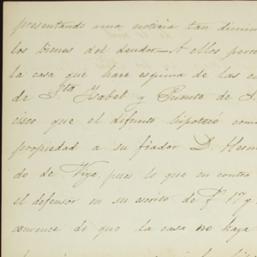 presentando una noticia tan diminu
los bienes del deudor—A ellos perte
la casa que hace esquina de las ca
de Sta Isabel y Puente de
cisco que el defunto hipotecó com
propiedad a su fiador D. Herm
do de Vega, pues lo que en contra
el defensor en su escrito de f. 17 y
convence de que la casa no haya